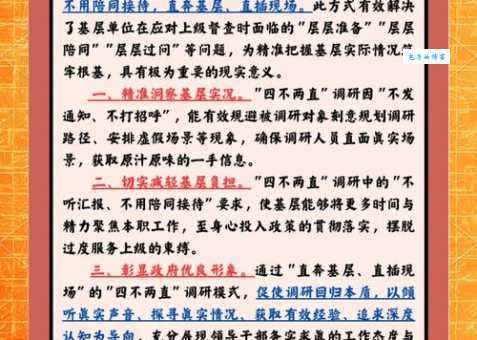 不用陪同接待，直奔基层、直插现场。此方式有效解决
了基层单位在应对上级督查时面临的“层层准备”“层层
陪同”“层层过问”等问题，为精准把握基层实际情况筑
牢根基，具有极为重要的现实意义。
一、精准洞察基层实况。“四不两直”调研因“不发
通知、不打招呼”，能有效规避被调研对象刻意规划调研
路径、安排虚假场景等现象，确保调研人员直面真实场
景，获取原汁原味的一手信息。
二、切实减轻基层负担。“四不两直”调研中的“不
听汇报、不用陪同接待”要求，使基层能够将更多时间与
精力聚焦本职工作，全身心投入政策的贯彻落实，摆脱
过度服务上级的束缚。
三、彰显政府优良形象。通过“直奔基层、直插现
场”的“四不两直”调研模式，促使调研回归本质，以倾
听真实声音、探寻真实情况、获取有效经验、追求深度
认知为导向，充分展现领导干部务实求真的工作态度与